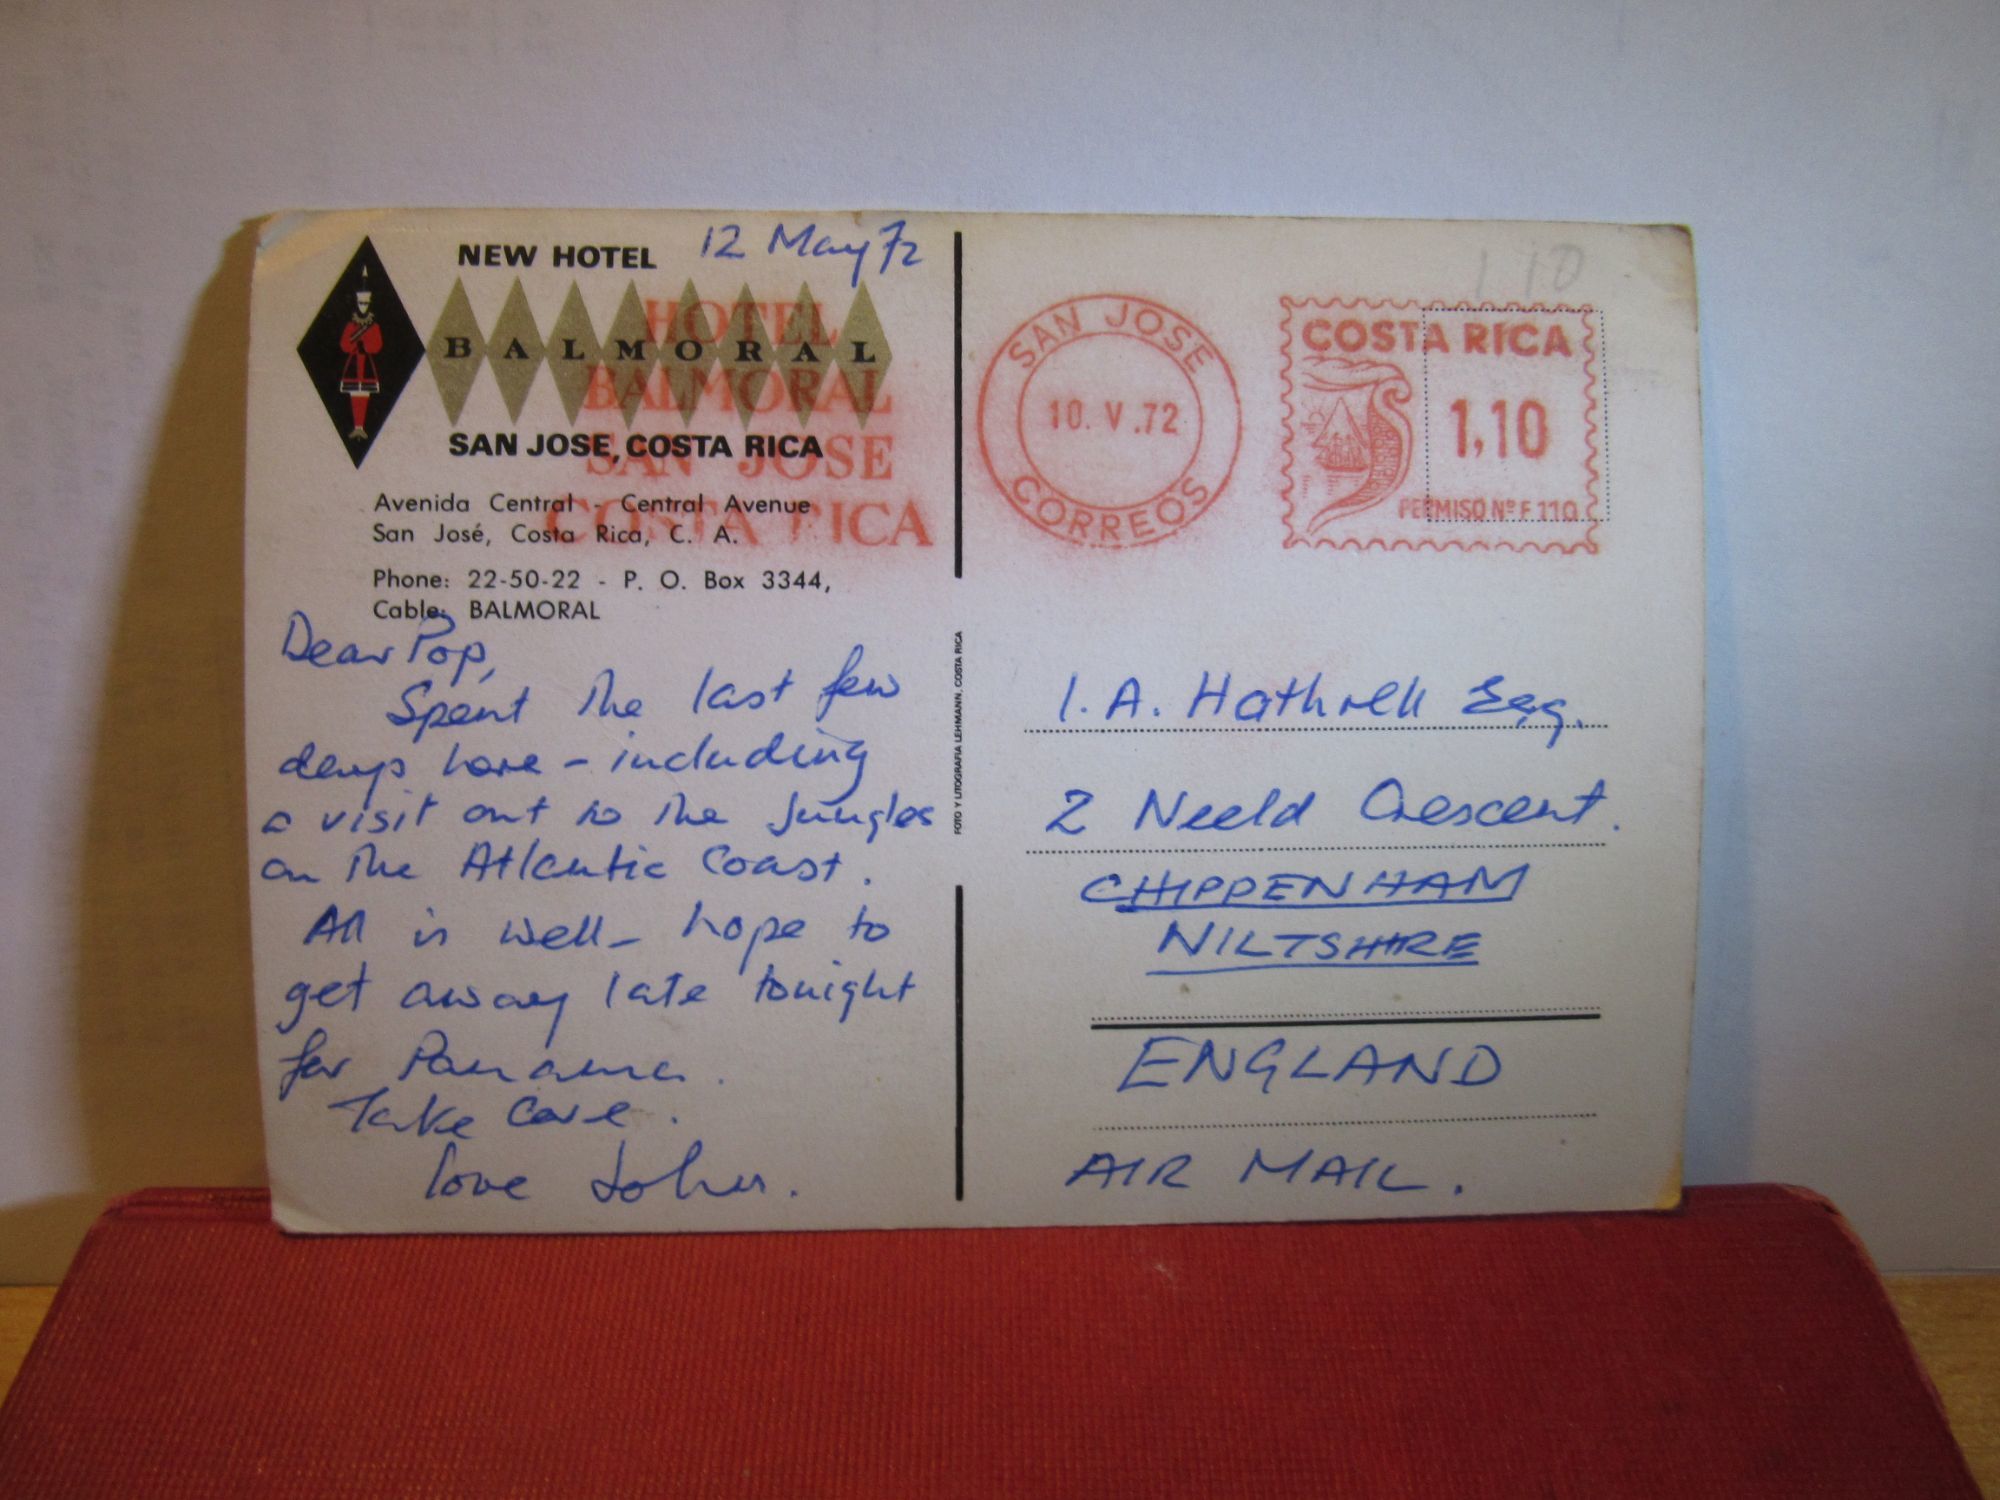 NEW HOTEL
12 May 72
BALMORAL
SAN JOSE, COSTA RICA
HOTEL
BALMORAL
SAN JOSE
COSTA RICA
Avenida Central - Central Avenue
San José, Costa Rica, C. A.
Phone: 22-50-22 - P. O. Box 3344,
Cable: BALMORAL
Dear Pop,
Spent the last few
days here - including
a visit out to the jungles
on the Atlantic Coast.
All is well - hope to
get away late tonight
for Panama.
Take care.
love
FOTO Y LITOGRAFIA LEHMANN, COSTA RICA
110
SAN JOSE
10. V .72
CORREOS
COSTA RICA
1,10
PERMISO Nº F 110
I. A. Hathrell Esq.
2 Neeld Crescent.
CHIPPENHAM
WILTSHIRE
ENGLAND
AIR MAIL.